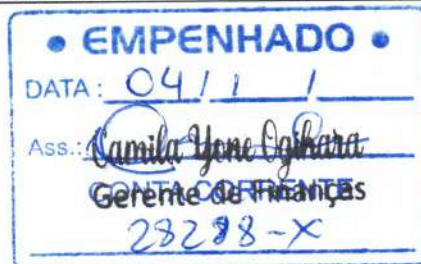 • EMPENHADO •
DATA: 04/1/
Ass.: Camila Yone Ogihara
CONTA CORRENTE
Gerente de Finanças
28298-X